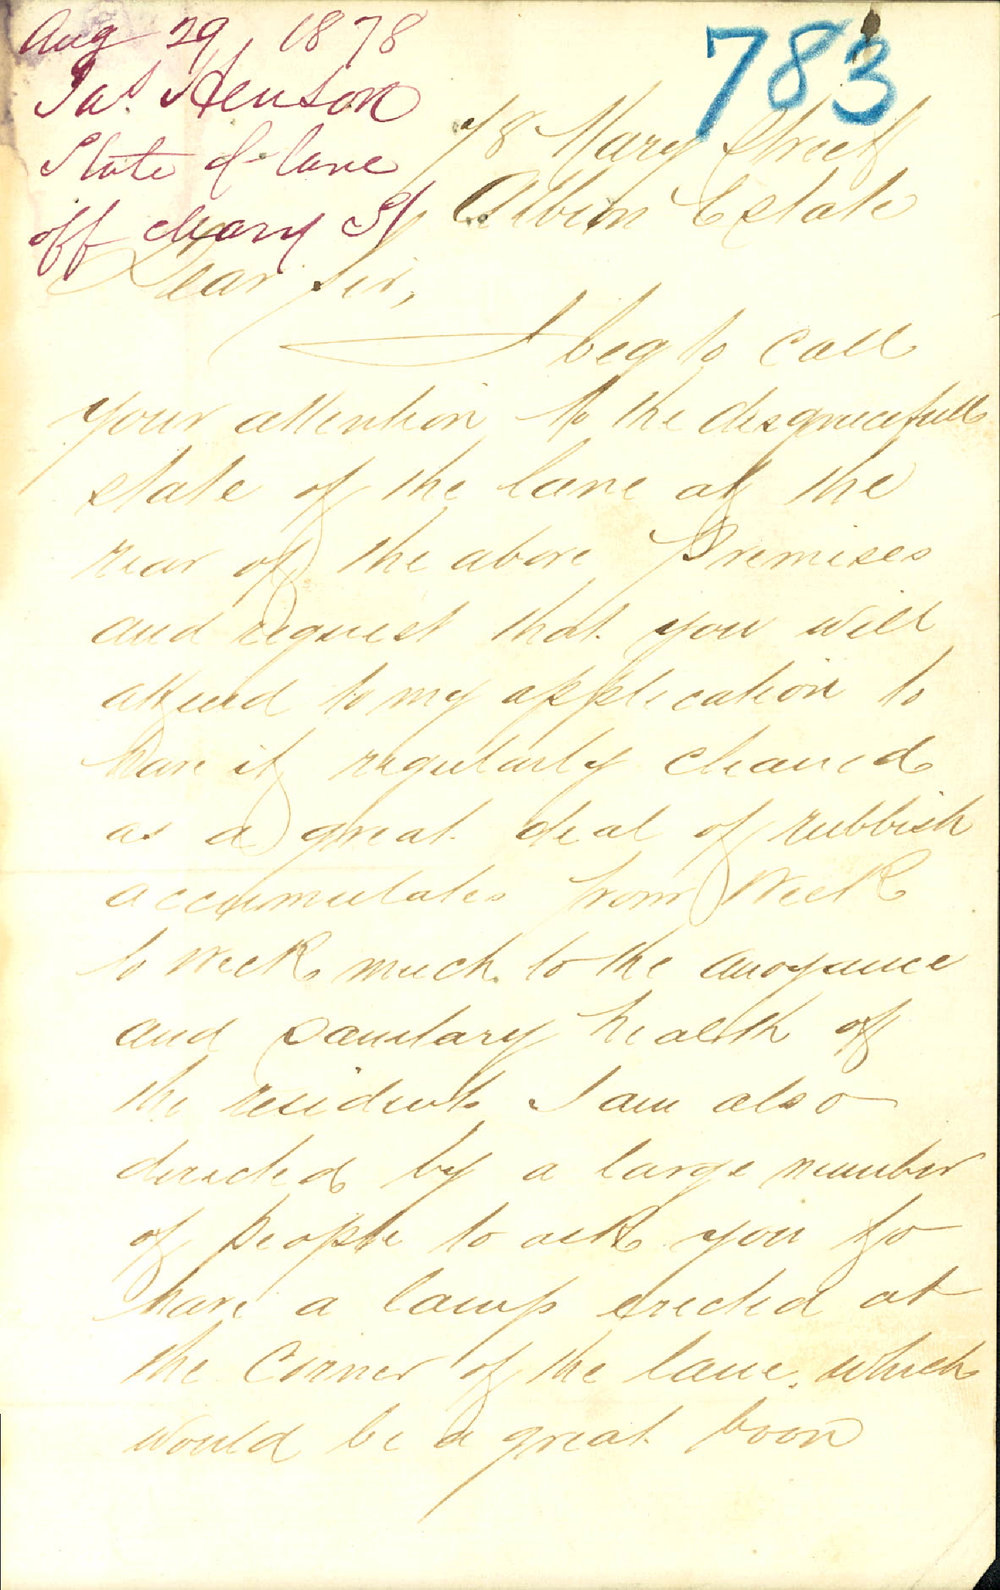 Aug 29, 1878
Jas. Henson
State of lane
off Mary St
783
78 Mary Street
Albion Estate
Dear Sir,
I beg to call
your attention to the disgracefull
state of the lane at the
rear of the above Premises
and request that you will
attend to my application to
have it regularly cleaned
as a great deal of rubbish
accumulates from Week
to Week much to the anoyance
and sanitary health of
the residents I am also
directed by a large number
of people to ask you to
have a lamp erected at
the Corner of the lane. which
would be a great boon